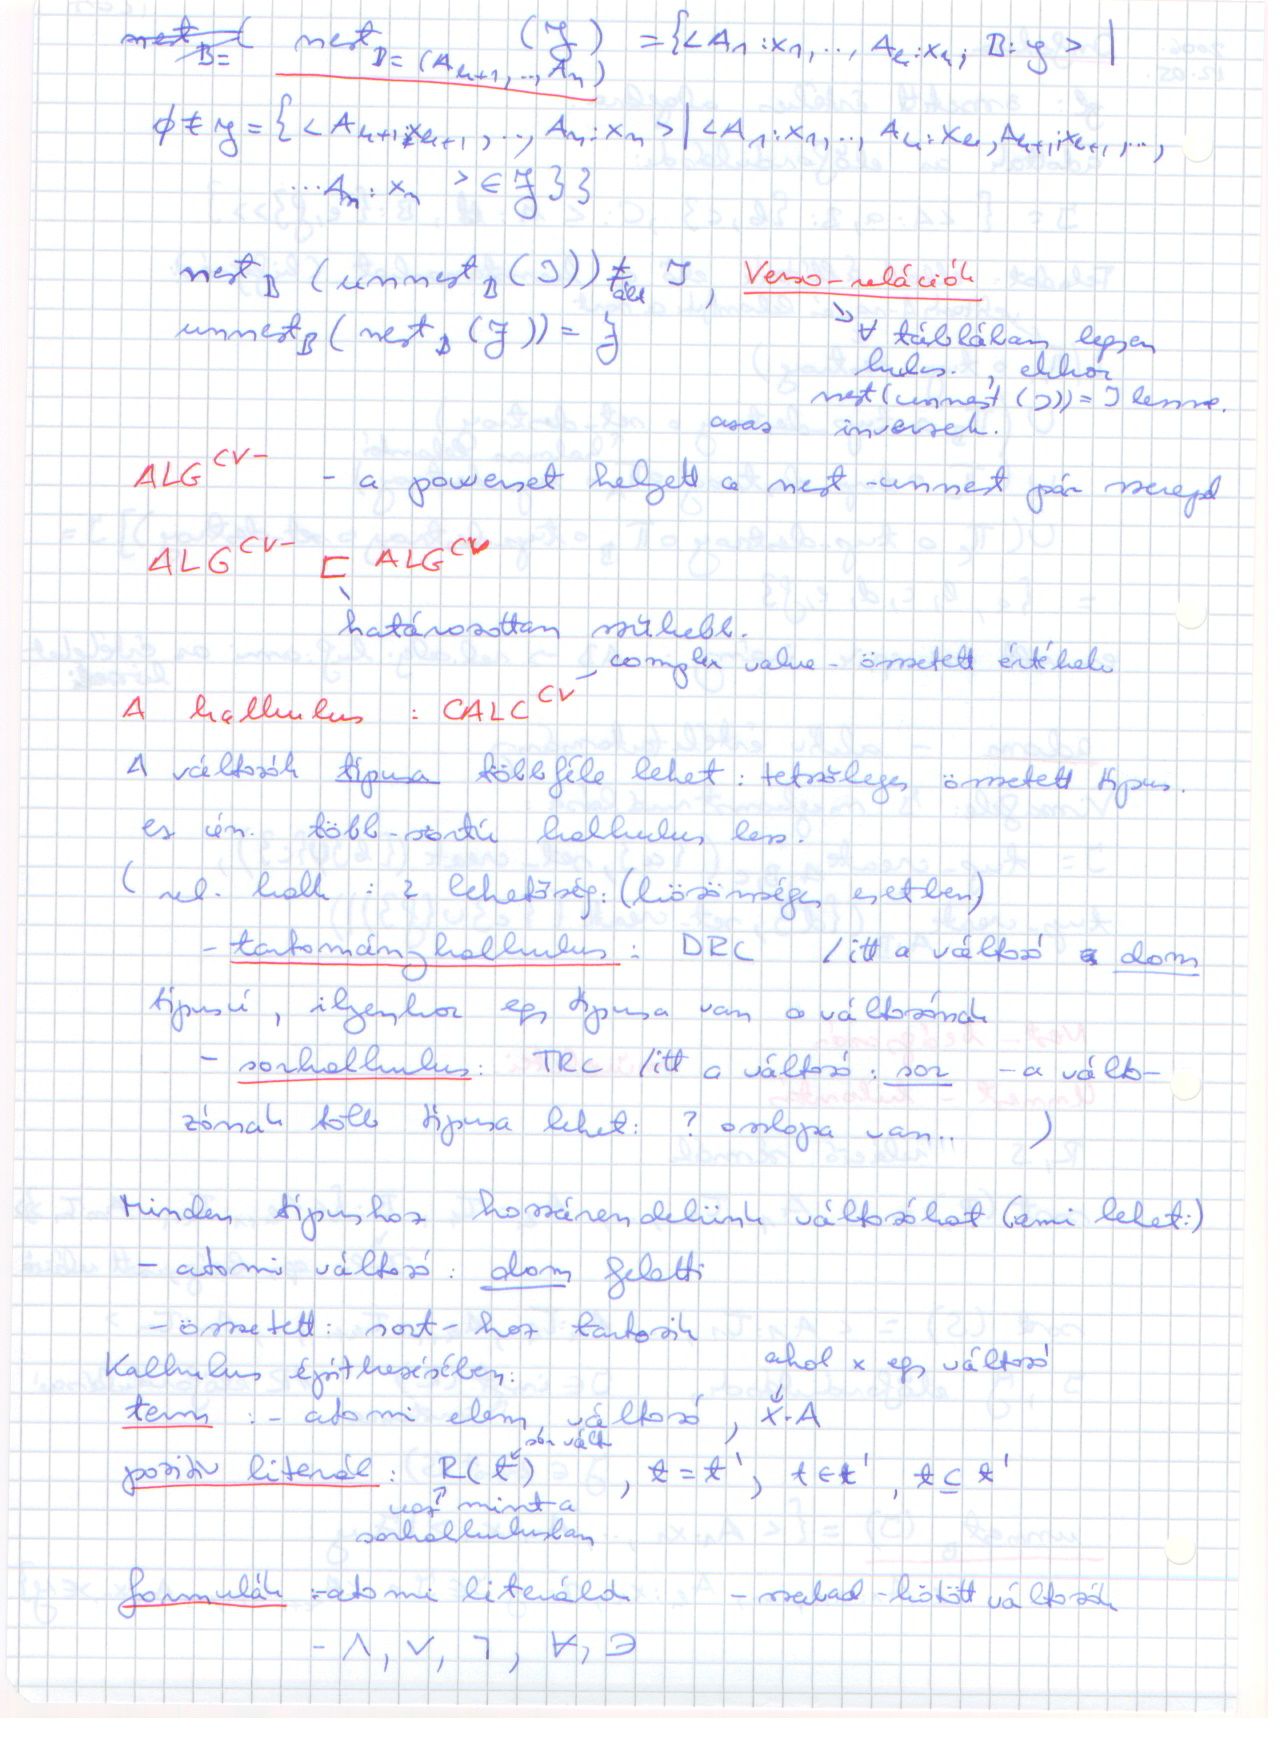 nest B= ( nest B=(A_{k+1},..,A_n) (J) = {<A_1:x_1,.., A_k:x_k, B:y> |
∅ ≠ y = {<A_{k+1}:x_{k+1},.., A_n:x_n> | <A_1:x_1,.., A_k:x_k, A_{k+1}:x_{k+1},..,
...A_n:x_n> ∈ J}}
nest_B (unnest_B (I)) ≠ I , Verso-relációk
ált
unnest_B (nest_B (J)) = J
↳ ∀ táblában legyen
kulcs. , ekkor
nest(unnest (I)) = I lenne.
azaz inverzek.
ALG^{CV-} - a powerset helyett a nest-unnest pár szerepel
ALG^{CV-} ⊏ ALG^{CV}
határozottan szűkebb.
complex value - összetett értékek
A kalkulus : CALC^{CV}
A változók típusa többféle lehet: tetszőleges összetett típus.
ez ún. több-sortú kalkulus lesz.
(rel. kalk : 2 lehetőség: (közönséges esetben)
- tartománykalkulus : DRC /itt a változó dom
típusú, ilyenkor egy típusa van a változónak
- sorkalkulus: TRC /itt a változó: sor - a válto-
zónak több típusa lehet: ? oszlopa van.. )
Minden típushoz hozzárendelünk változókat (ami lehet:)
- atomi változó: dom feletti
- összetett: sort-hoz tartozik
Kalkulus építkezésében:
ahol x egy változó
term : - atomi elem, változó , x.A
sor vált
pozitív literál : R(t) , t = t' , t ∈ t' , t ⊆ t'
mint a
sorkalkulusban
formulák : - atomi literálok - szabad - kötött változók
- ∧, ∨, ¬, ∀, ∃